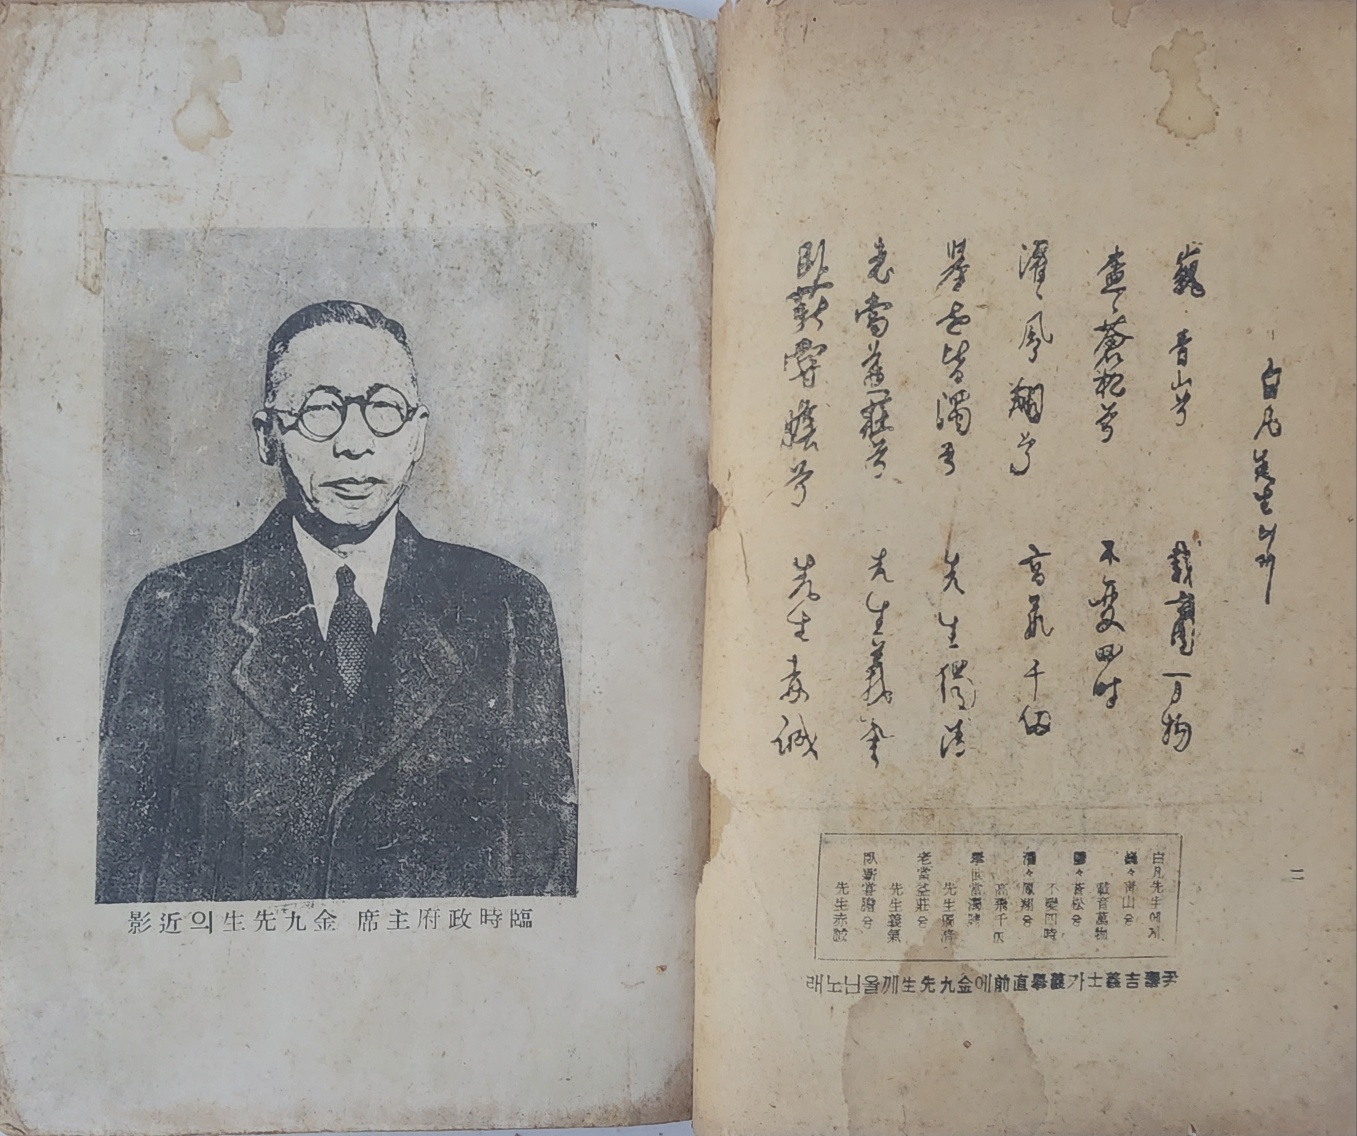 臨時政府主席 金九先生의近影
白凡先生에게
巍靑山兮 載育万物
杳〻蒼松兮 不變四時
濯〻鳳翔兮 高飛千仞
擧世皆濁兮 先生獨淸
老當益莊兮 先生義氣
臥薪嘗膽兮 先生赤誠
白凡先生에게
巍々靑山兮
載育萬物
鬱々蒼松兮
不變四時
濯々鳳翔兮
高飛千仞
擧世皆濁兮
先生獨淸
老當益莊兮
先生義氣
臥薪嘗膽兮
先生赤誠
尹吉義士가義擧直前에金九先生께올닌노래
二